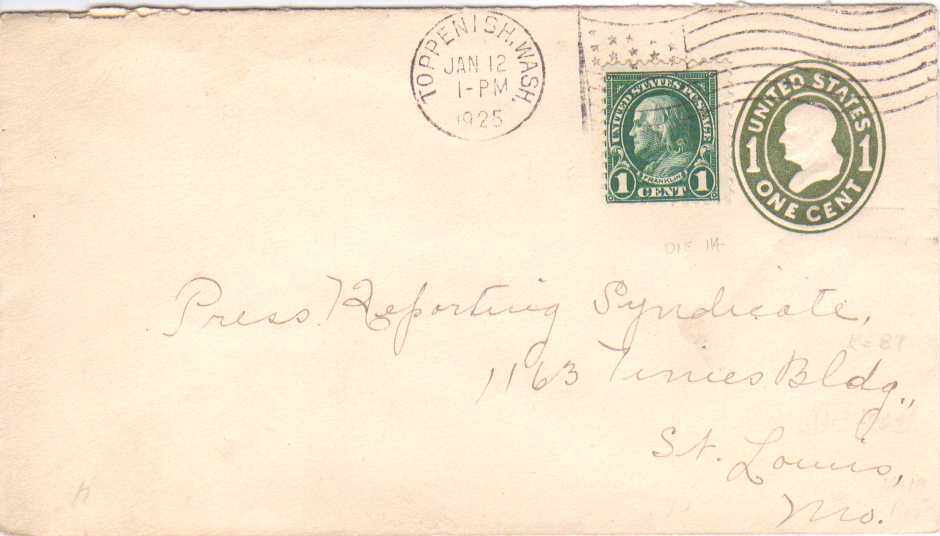 TOPPENISH, WASH.
JAN 12
1-PM
1925
UNITED STATES POSTAGE
FRANKLIN
1 CENT 1
UNITED STATES
1 1
ONE CENT
DIE 1A
Press Reporting Syndicate,
K=87
1163 Times Bldg.,
St. Louis,
Mo.